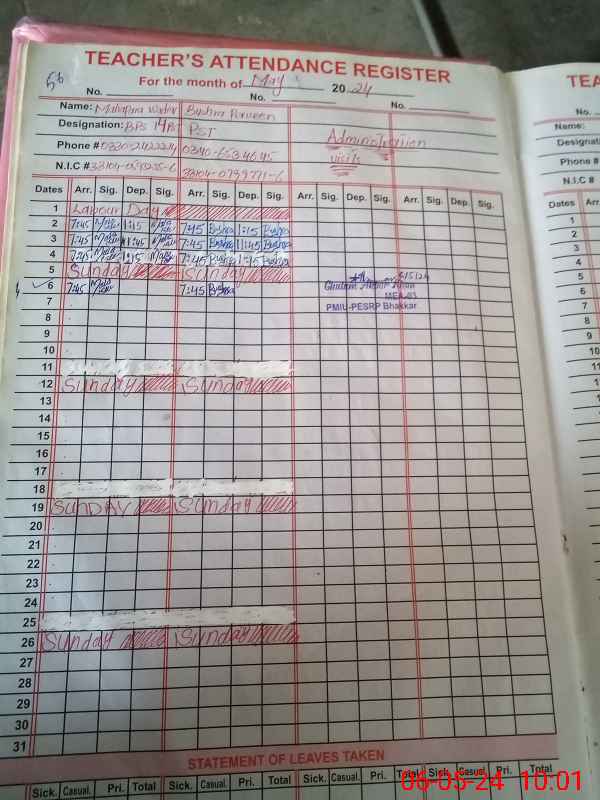 56
TEACHER'S ATTENDANCE REGISTER
TEA
For the month of May 2024
No. No. No.
No.
Name: Bushra Parveen
Name:
Designation: PST
Designati
Administration
visits
Phone # 0340-6534645
Phone #
N.I.C #
N.I.C #
Dates Arr. Sig. Dep. Sig. Arr. Sig. Dep. Sig. Arr. Sig. Dep. Sig. Arr. Sig. Dep. Sig.
Dates Arr.
1 Labour Day
1
2 7:45 1:15 7:45 Bushra 1:15 Bushra
2
3 7:45 11:45 7:45 Bushra 11:45 Bushra
3
4 7:45 1:15 7:45 Bushra 1:15 Bushra
4
5 Sunday Sunday
5
6 7:45 7:45 Bushra
6
MEA-03
7
PMIU-PESRP Bhakkar
7
8
8
9
9
10
10
11
11
12 Sunday Sunday
12
13
13
14
14
15
15
16
16
17
17
18
18
19 SUNDAY Sunday
19
20
20
21
21
22
22
23
23
24
24
25
25
26 Sunday Sunday
26
27
27
28
28
29
29
30
30
31
31
STATEMENT OF LEAVES TAKEN
Sick. Casual. Pri. Total Sick. Casual. Pri. Total Sick. Casual. Pri. Total Sick. Casual. Pri. Total
06-05-24 10:01